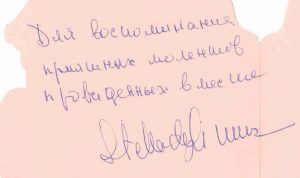 Для воспоминания
приятных моментов
проведенных вместе